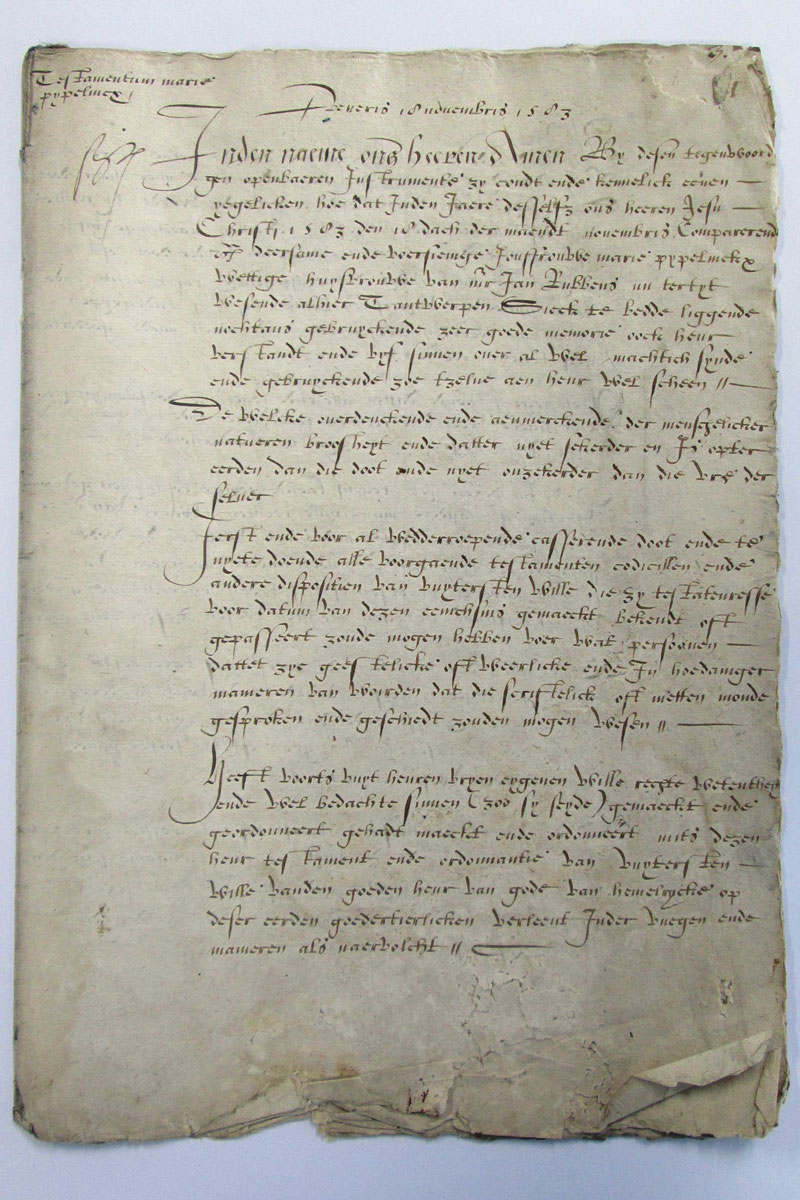 Testamentum marie
pypelincx
Veneris 18 novembris 1583
Inden naeme ons heeren Amen By desen tegenwoord
gen openbaeren Instrumente zy condt ende kennelick eenen
yegelicken hoe dat Inden Jaere desselfs ons heeren Jesu
Christi 1583 den 18 dach der maendt novembris Comparerende
deersame ende voersienige Jouffrouwe marie pypelinckx
wettige huysvrouwe van mr Jan Rubbens nu tertyt
wesende alhier Tantwerpen Sieck te bedde liggende
nochtans gebruyckende zeer goede memorie oock heur
verstandt ende vyf sinnen over al wel machtich synde
ende gebruyckende zoe tzelve aen heur wel scheen //
De welcke overdenckende ende aenmerckende der menschelicker
natueren broosheyt ende datter nyet sekerder en Is opter
eerden dan die doot ende nyet onzekerder dan die vre der
selver
Ierst ende voor al wedderroepende casserende doot ende te
nyete doende alle voorgaende testamenten codicillen ende
andere disposition van vuytersten wille die zy testateuresse
voor datum van dezen eenichsins gemaeckt bekendt oft
gepasseert zoude mogen hebben voer wat persoonen
dattet zye geestelicke oft weerlicke ende In hoedaniger
manieren van woirden dat die scriftelick oft metten monde
gesproken ende geschiedt zouden mogen wesen //
Heeft voorts vuyt heuren vryen eygenen wille rechte wetenthey
ende wel bedachte sinnen (zoo sy seyde) gemaeckt ende
geordonneert gehadt maeckt ende ordonneert mits dezen
heur testament ende ordonnantie van vuytersten
wille vanden goeden heur van gode van hemelrycke op
deser eerden goedertierlicken verleent Inder vuegen ende
manieren als naervolcht //